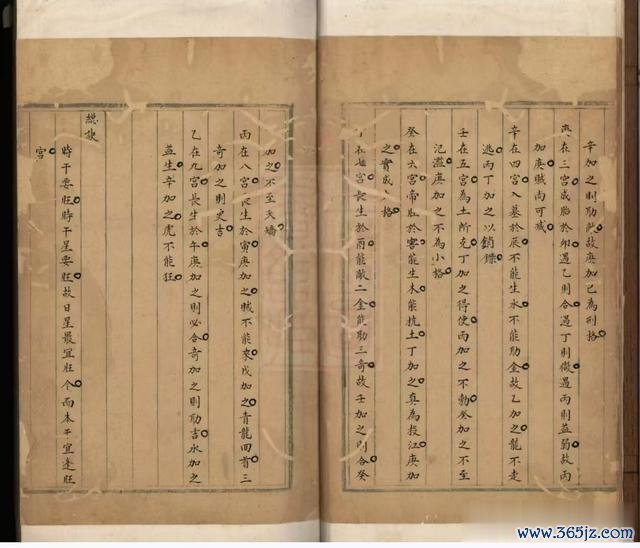 辛加之則助故庚加已為刑格
在三宮成胎於卯遇乙則合遇丁則遇丙則益弱故丙
加庚賊尚可滅
辛在四宮入墓於辰不能生水不能助金故乙加之龍不走
逃丙丁加之以銷鑠
壬在五宮為土所克丁加之得使丙加之不勃癸加之不至
氾濫庚加之不為小格
癸在六宮帝旺於客能生木能抗土丁加之真為投江庚加
之實成大格
丁在七宮長生於酉能敵二金能助三奇故壬加之則合癸
加之不至夭矯
丙在八宮長生於寅庚加之賊不能來戊加之青龍回首三
奇加之則更吉
乙在九宮長生於午庚加之則必合奇加之則助吉水加之
益生辛加之虎不能狂
總訣
時干要旺時干星要旺故日星最宜旺个而本干宜逢旺
宮
www.365jz.com